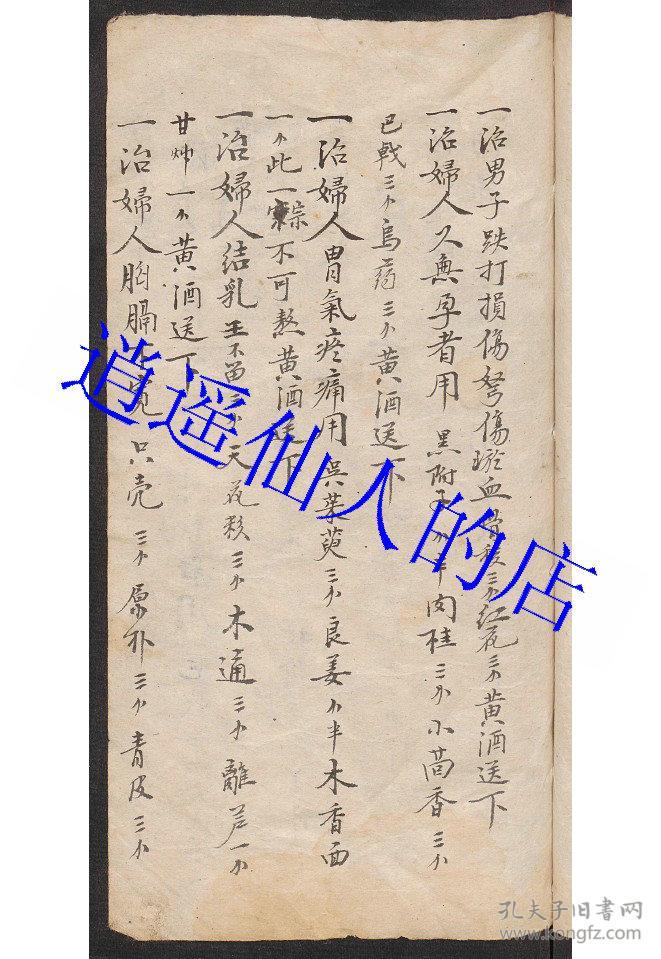 一治男子跌打損傷努傷瘀血三小紅花三小黄酒送下
一治婦人久無孕者用黑附子小半肉桂三小小茴香三小
巳戟三小烏药三小黄酒送下
一治婦人胃氣疼痛用吳茱萸三小良姜小半木香面
一小此一宗不可熬黄酒送下
一治婦人結乳王不留三小天花粉三小木通三小離芦一小
甘艸一小黄酒送下
一治婦人胸膈不寬只壳三小厚朴三小青皮三小
逍遥仙人的店
孔夫子旧書网
www.kongfz.com